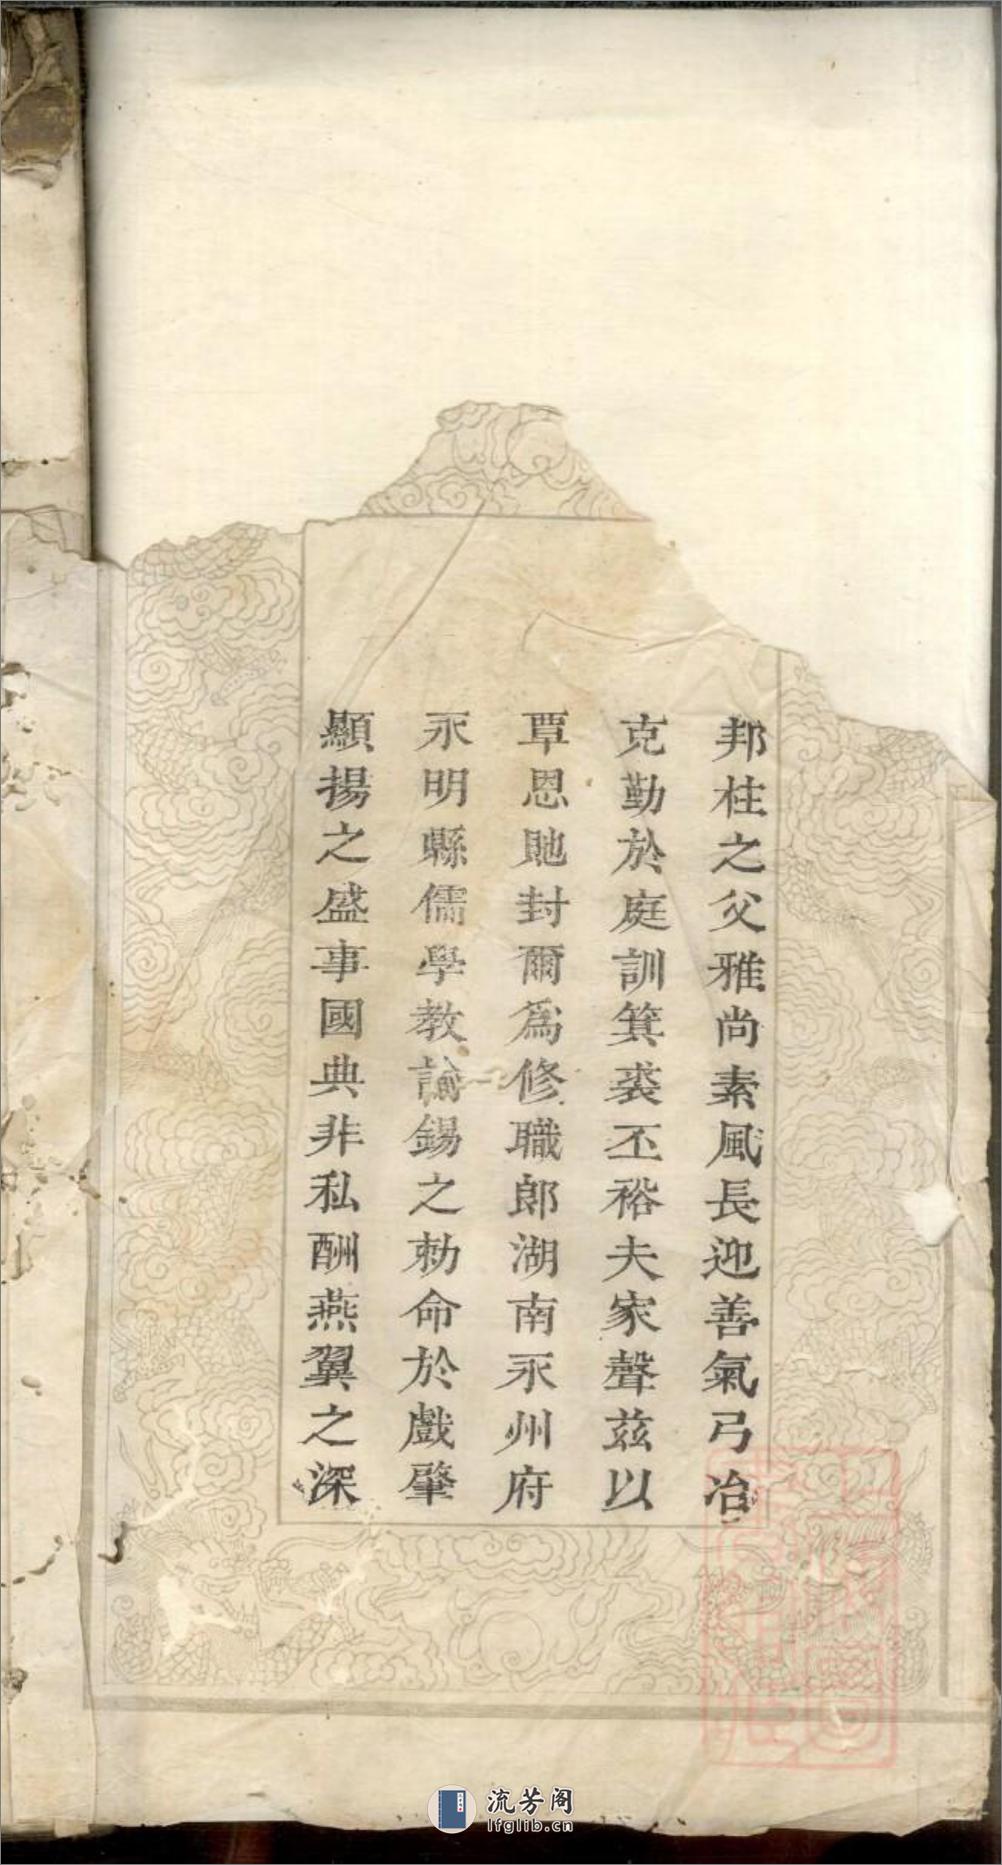 邦柱之父雅尚素風長迎善氣弓冶
克勤於庭訓箕裘丕裕夫家聲茲以
覃恩貤封爾爲修職郎湖南永州府
永明縣儒學教諭錫之勅命於戲肇
顯揚之盛事國典非私酬燕翼之深
流芳阁
lfglib.cn